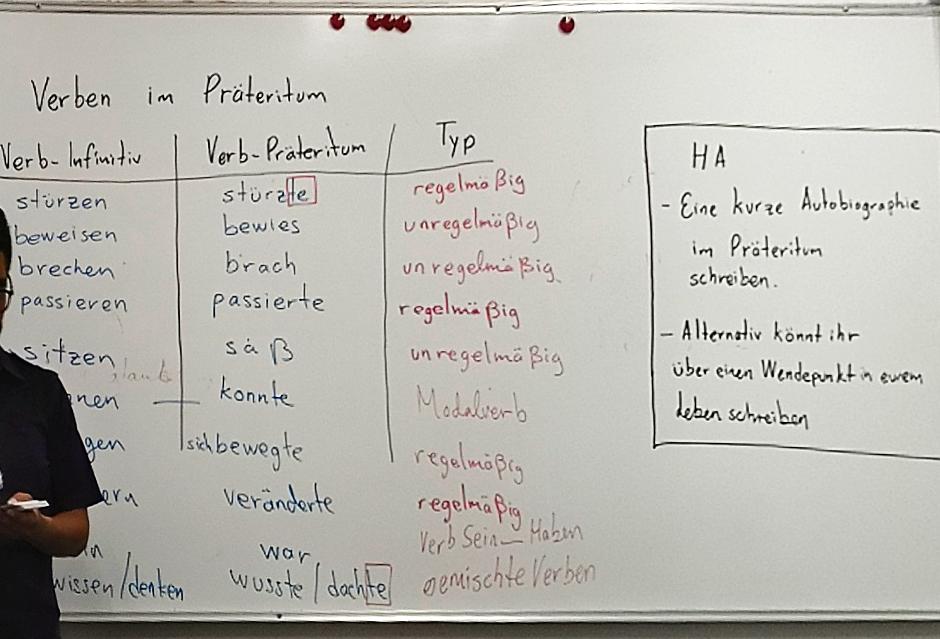 Verben im Präteritum
Verb-Infinitiv Verb-Präteritum Typ
stürzen stürzte regelmäßig
beweisen bewies unregelmäßig
brechen brach unregelmäßig
passieren passierte regelmäßig
sitzen saß unregelmäßig
nen konnte Modalverb
gen sich bewegte regelmäßig
ern veränderte regelmäßig
war Verb Sein – Haben
wissen/denken wusste/dachte gemischte Verben
HA
- Eine kurze Autobiographie
im Präteritum
schreiben.
- Alternativ könnt ihr
über einen Wendepunkt in eurem
Leben schreiben